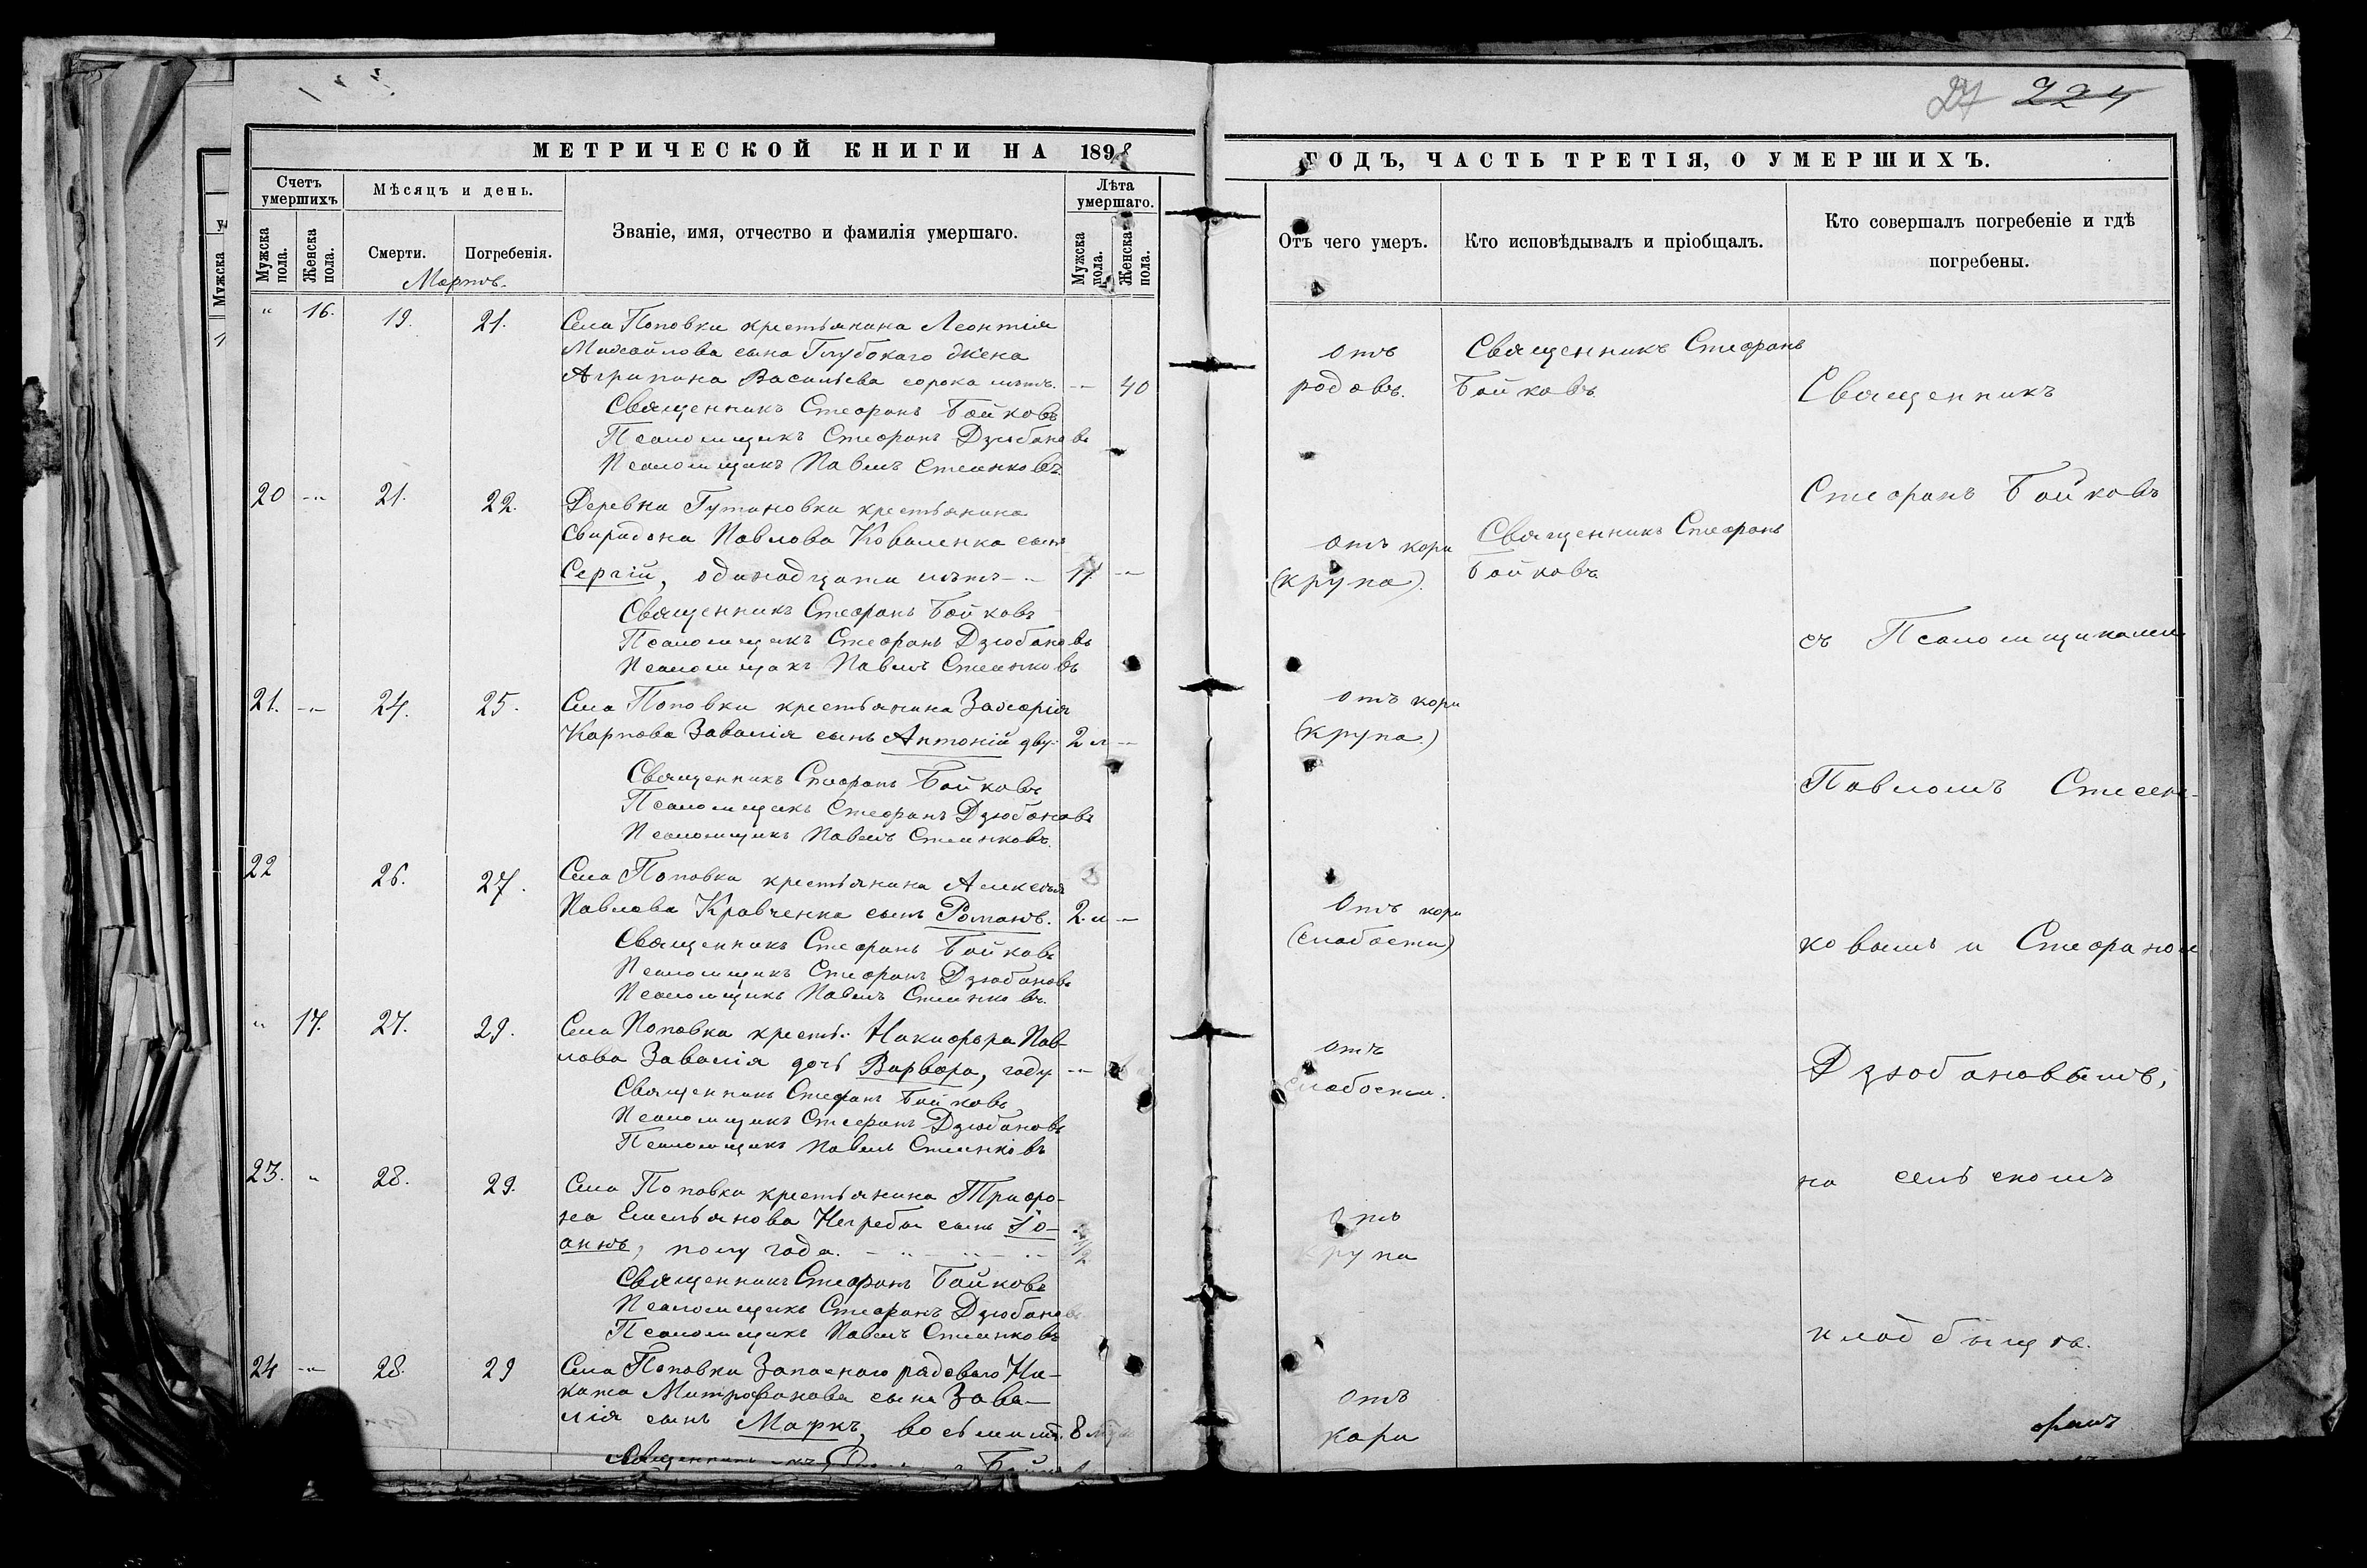 27 224
МЕТРИЧЕСКОЙ КНИГИ НА 1898
ГОДЪ, ЧАСТЬ ТРЕТІЯ, О УМЕРШИХЪ.
Счетъ умершихъ
Мѣсяцъ и день.
Званіе, имя, отчество и фамилія умершаго.
Лѣта умершаго.
Мужска пола.
Женска пола.
Смерти.
Погребенія.
Мужска пола.
Женска пола.
Отъ чего умеръ.
Кто исповѣдывалъ и пріобщалъ.
Кто совершалъ погребеніе и гдѣ
погребены.
Мартъ.
" 16. 19. 21.
Села Поповки крестьянина Леонтія
Михайлова сына Глубокаго жена
Агрипина Васильева сорока лѣтъ. 40
Священникъ Стефанъ Бойковъ
Псаломщикъ Стефанъ Дзюбановъ
Псаломщикъ Павелъ Стеенковъ
отъ
родовъ.
Священникъ Стефанъ
Бойковъ
20 21. 22.
Деревни Гутановки крестьянина
Свиридона Павлова Коваленка сынъ
Сергій, одинадцати лѣтъ 11
Священникъ Стефанъ Бойковъ
Псаломщикъ Стефанъ Дзюбановъ
Псаломщикъ Павелъ Стеенковъ
отъ кори
(крупа).
Священникъ Стефанъ
Бойковъ
21. 24. 25.
Села Поповки крестьянина Захарія
Карпова Завалія сынъ Антоній дву- 2 л
Священникъ Стефанъ Бойковъ
Псаломщикъ Стефанъ Дзюбановъ
Псаломщикъ Павелъ Стеенковъ.
отъ кори
(крупа.)
22 26. 27.
Села Поповки крестьянина Алексѣя
Павлова Кравченка сынъ Романъ. 2 л
Священникъ Стефанъ Бойковъ
Псаломщикъ Стефанъ Дзюбановъ
Псаломщикъ Павелъ Стеенковъ.
Отъ кори
(слабости)
" 17. 27. 29.
Села Поповки крестьян. Никифора Пав-
лова Завалія дочь Варвара, году
Священникъ Стефанъ Бойковъ
Псаломщикъ Стефанъ Дзюбановъ
Псаломщикъ Павелъ Стеенковъ
отъ
слабости.
23. " 28. 29.
Села Поповки крестьянина Трифо-
на Емельянова сынъ Іо-
аннъ, полу года. 1/2
Священникъ Стефанъ Бойковъ
Псаломщикъ Стефанъ Дзюбановъ
Псаломщикъ Павелъ Стеенковъ
отъ
крупа
24 28. 29
Села Поповки Запаснаго рядоваго Ни-
Митрофанова сына Зава-
лія сынъ Маркъ, восьми 8
Священникъ
отъ
кори
Священникъ
Стефанъ Бойковъ
съ Псаломщиками
Павломъ Стеен-
ковымъ и Стефаном
Дзюбановымъ,
на сельскомъ
кладбищѣ.